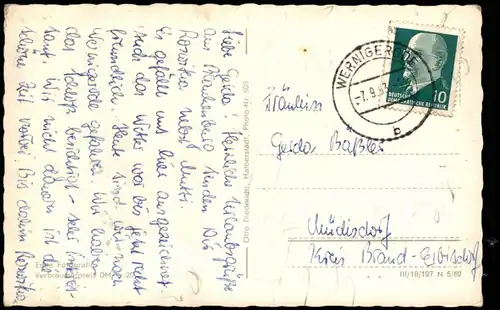 Liebe Gerda! Herzliche Urlaubsgrüße
aus Blankenburg senden Dir
Roswitha nebst Mutti.
Es gefällt uns hier ausgezeichnet.
Auch das Wetter war bis jetzt recht
freundlich. Heute sind wir nach
Wernigerode gefahren. Wir haben
das Schloß besichtigt - sehr interes-
sant. Wir nicht daran ist die
schöne Zeit vorbei. Bis dahin Roswitha
Echt Foto
Verbraucherpreis DM
Otto Biedermann, Halberstadt, Photo-Nr. 101
WERNIGERODE
-7.9.6
b
10
DEUTSCHE
DEMOKRATISCHE REPUBLIK
Fräulein
Gerda Baßler
Müdisdorf
Kreis Brand-Erbisdorf
III/18/197 N 5/62